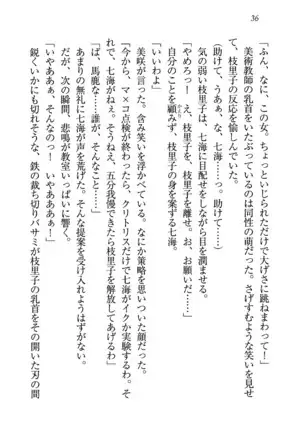 36
「ふん、なに、この女。ちょっといじられただけで大げさに跳ねまわって！」
美術教師の乳首をいたぶっているのは同性の萌だった。さげすむような笑いを見せて、枝里子の反応を愉しんでいた。
「助けて、うあっ、な、七海……っ。助けて……っ」
気の弱い枝里子は、七海に目配せをしながら目を潤ませる。
「やめろっ！　え、枝里子を、枝里子を離せっ。お、お願いだ……っ」
自分のことを顧みず、枝里子の身を案ずる七海。
「いいわよ」
美咲が言った。含み笑いを浮かべている。なにか策略を思いついた顔だった。
「今から、マ×コ点検が終わったら、クリトリスだけで七海がイクか実験するわ。それで、七海がイカずに、そうねえ、五分我慢できたら枝里子を解放してあげるわ」
「な、馬鹿な……っ。誰が、そんなこと……っ」
あまりの無礼に七海が声を荒げた。そんな提案を受け入れようはずがない。
だが、次の瞬間、悲鳴が教室いっぱいに響く。
「いやああぁっ、そんなのっ！　いやあああぁ！」
鋭くいかにも切れそうな、鉄の裁ち切りバサミが枝里子の乳首をその開いた刃の間